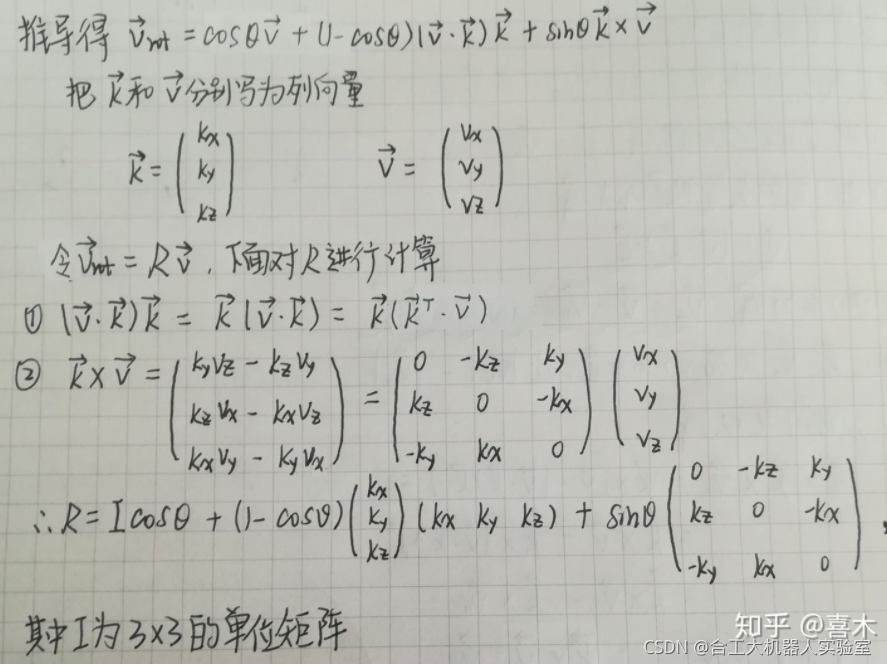 推导得 v⃗rot = cosθv⃗ + (1-cosθ)(v⃗·k⃗)k⃗ + sinθk⃗×v⃗
把k⃗和v⃗分别写为列向量
k⃗ = (kx ky kz) v⃗ = (vx vy vz)
令v⃗rot = Rv⃗, 下面对R进行计算
① (v⃗·k⃗)k⃗ = k⃗(v⃗·k⃗) = k⃗(k⃗ᵀ·v⃗)
② k⃗×v⃗ = (kyvz - kzvy
kzvx - kxvz
kxvy - kyvx) = (0 -kz ky
kz 0 -kx
-ky kx 0) (vx
vy
vz)
∴R = Icosθ + (1-cosθ)(kx
ky
kz)(kx ky kz) + sinθ(0 -kz ky
kz 0 -kx
-ky kx 0),
其中I为3×3的单位矩阵
知乎 @喜木
CSDN @合工大机器人实验室